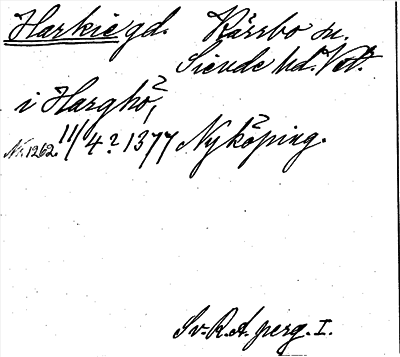 Harkie gd. Kärrbo sn.
Siende hd. Vstl.
i Harghö,
Nr. 1262. 11/4? 1377 Nyköping.
Sv. R. A. perg. I.